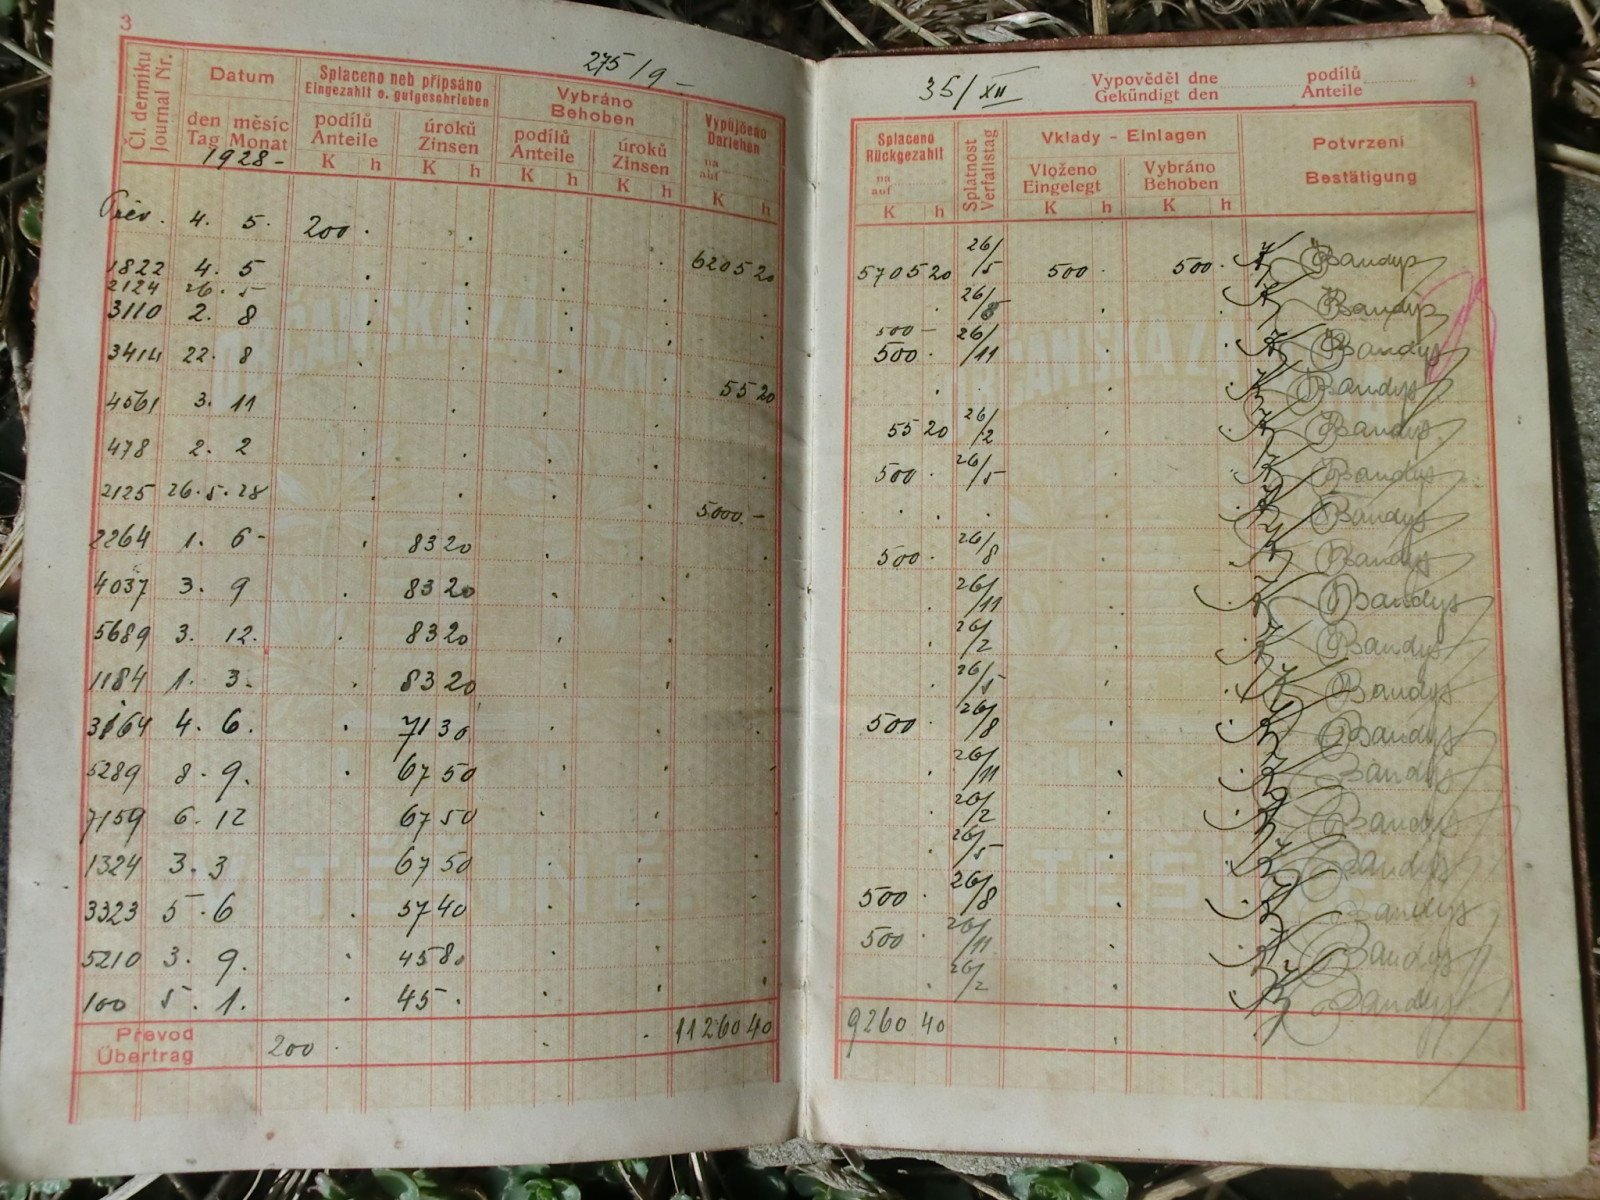 3
275/9 -
Čl. denniku
Journal Nr.
Datum
den měsíc
Tag Monat
1928-
Splaceno neb připsáno
Eingezahlt o. gutgeschrieben
podílů
Anteile
K h
úroků
Zinsen
K h
Vybráno
Behoben
podílů
Anteile
K h
úroků
Zinsen
K h
Vypůjčeno
Darlehen
na
auf
K h
Přev. 4. 5. 200 .
620520
1822 4. 5
2124 26. 5
3110 2. 8
3414 22. 8
5520
4561 3. 11
478 2. 2
2125 26.5.28
5000.-
2264 1. 6- 8320
4037 3. 9 8320
5689 3. 12. 8320
1184 1. 3. 8320
3164 4. 6. 7130
5289 8. 9. 6750
7159 6. 12 6750
1324 3. 3 6750
3323 5. 6 5740
5210 3. 9. 4580
100 5. 1. 45 .
Převod
Übertrag
200 . 1126040
35/XII
Vypověděl dne podílů
Gekündigt den Anteile
4
Splaceno
Rückgezahlt
na
auf
K h
Splatnost
Verfallstag
Vklady - Einlagen
Vloženo
Eingelegt
K h
Vybráno
Behoben
K h
Potvrzení
Bestätigung
570520 26/5 500 . 500 . Bandys
26/8 Bandys
500 -
500 . 26/11 Bandys
Bandys
5520 26/2 Bandys
500 . 26/5 Bandys
Bandys
500 . 26/8 Bandys
26/11 Bandys
26/2 Bandys
26/5 Bandys
500 . 26/8 Bandys
26/11 Bandys
26/2 Bandys
26/5 Bandys
500 . 26/8 Bandys
500 . 26/11 Bandys
26/2 Bandys
926040
OBČANSKÁ ZÁLOŽNA
V TĚŠÍNĚ